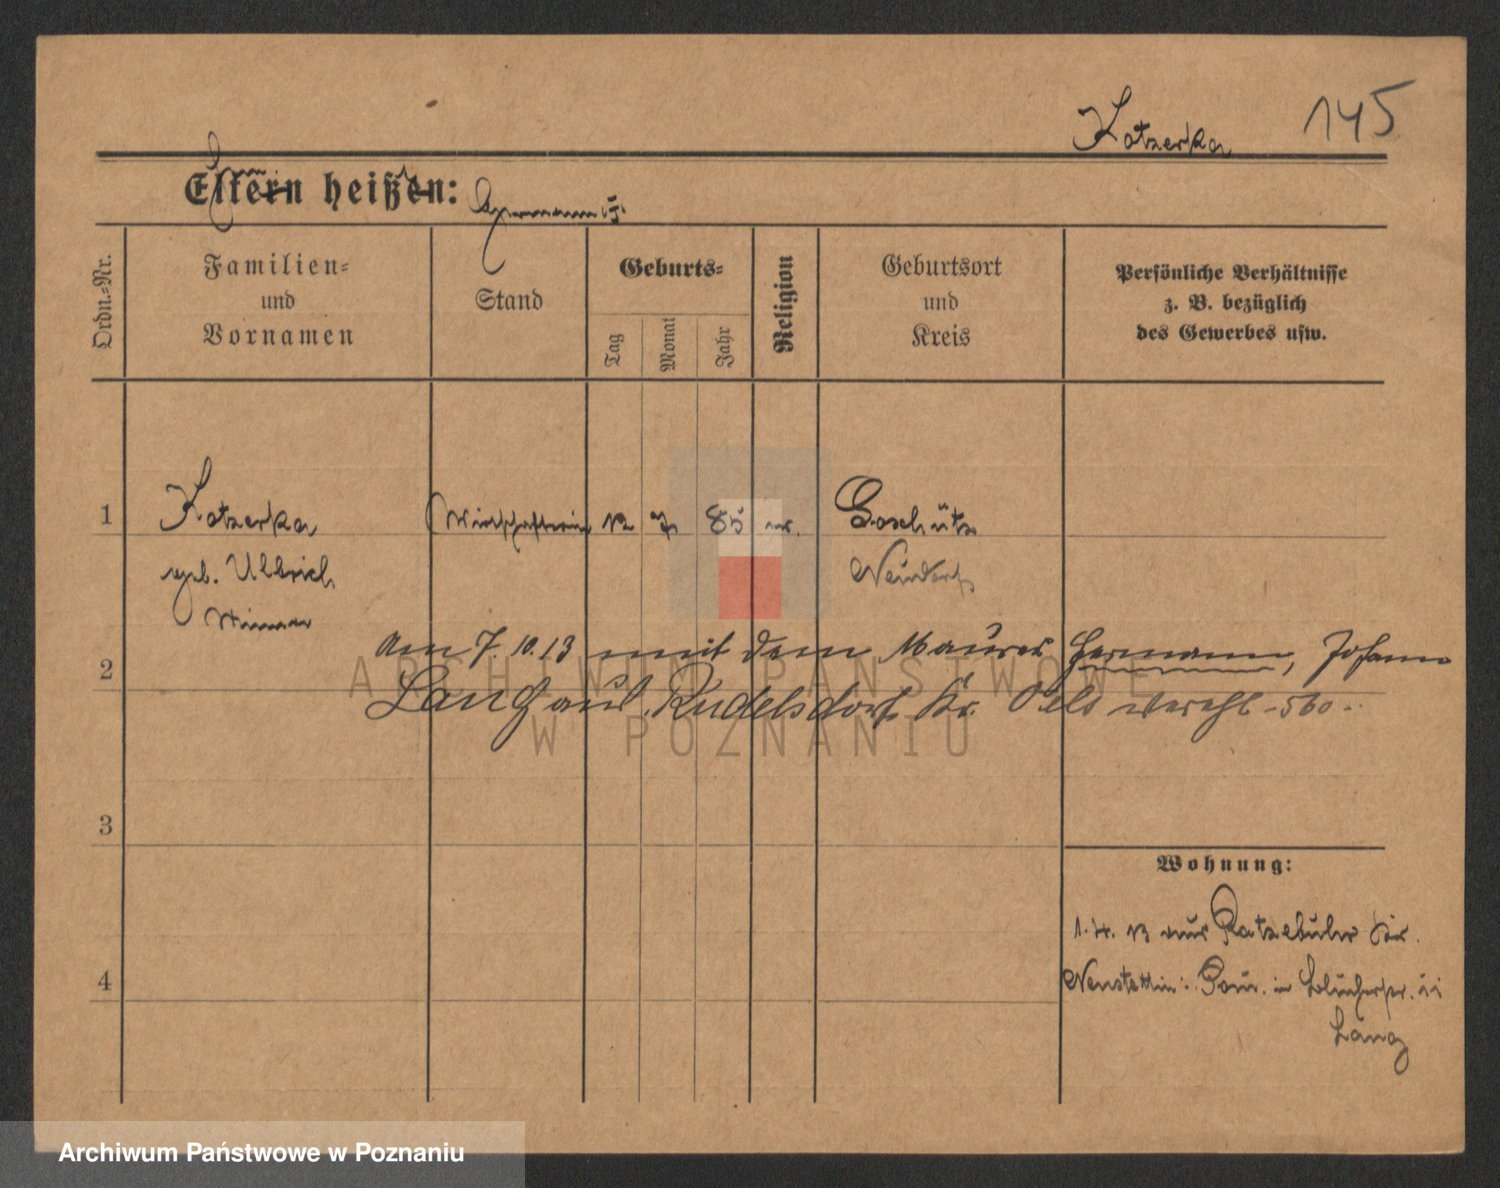 Kotzerka 145
Eltern heißen:
Ordn.-Nr.
Familien-
und
Vornamen
Stand
Geburts-
Tag
Monat
Jahr
Religion
Geburtsort
und
Kreis
Persönliche Verhältnisse
z. B. bezüglich
des Gewerbes usw.
1 Kotzerka Wirtschafterin 12 7 85 Goschütz
geb. Ullrich Neudorf
am 7.10.13 mit dem Maurer Hermann, Johann
2
Lang aus Rudelsdorf Kr. Oels verehl. 560
3
Wohnung:
1.4.13 aus Ratzebuhr Kr.
4
Neustettin: Pos. in Blücherstr.
Lang
ARCHIWUM PAŃSTWOWE
W POZNANIU
Archiwum Państwowe w Poznaniu